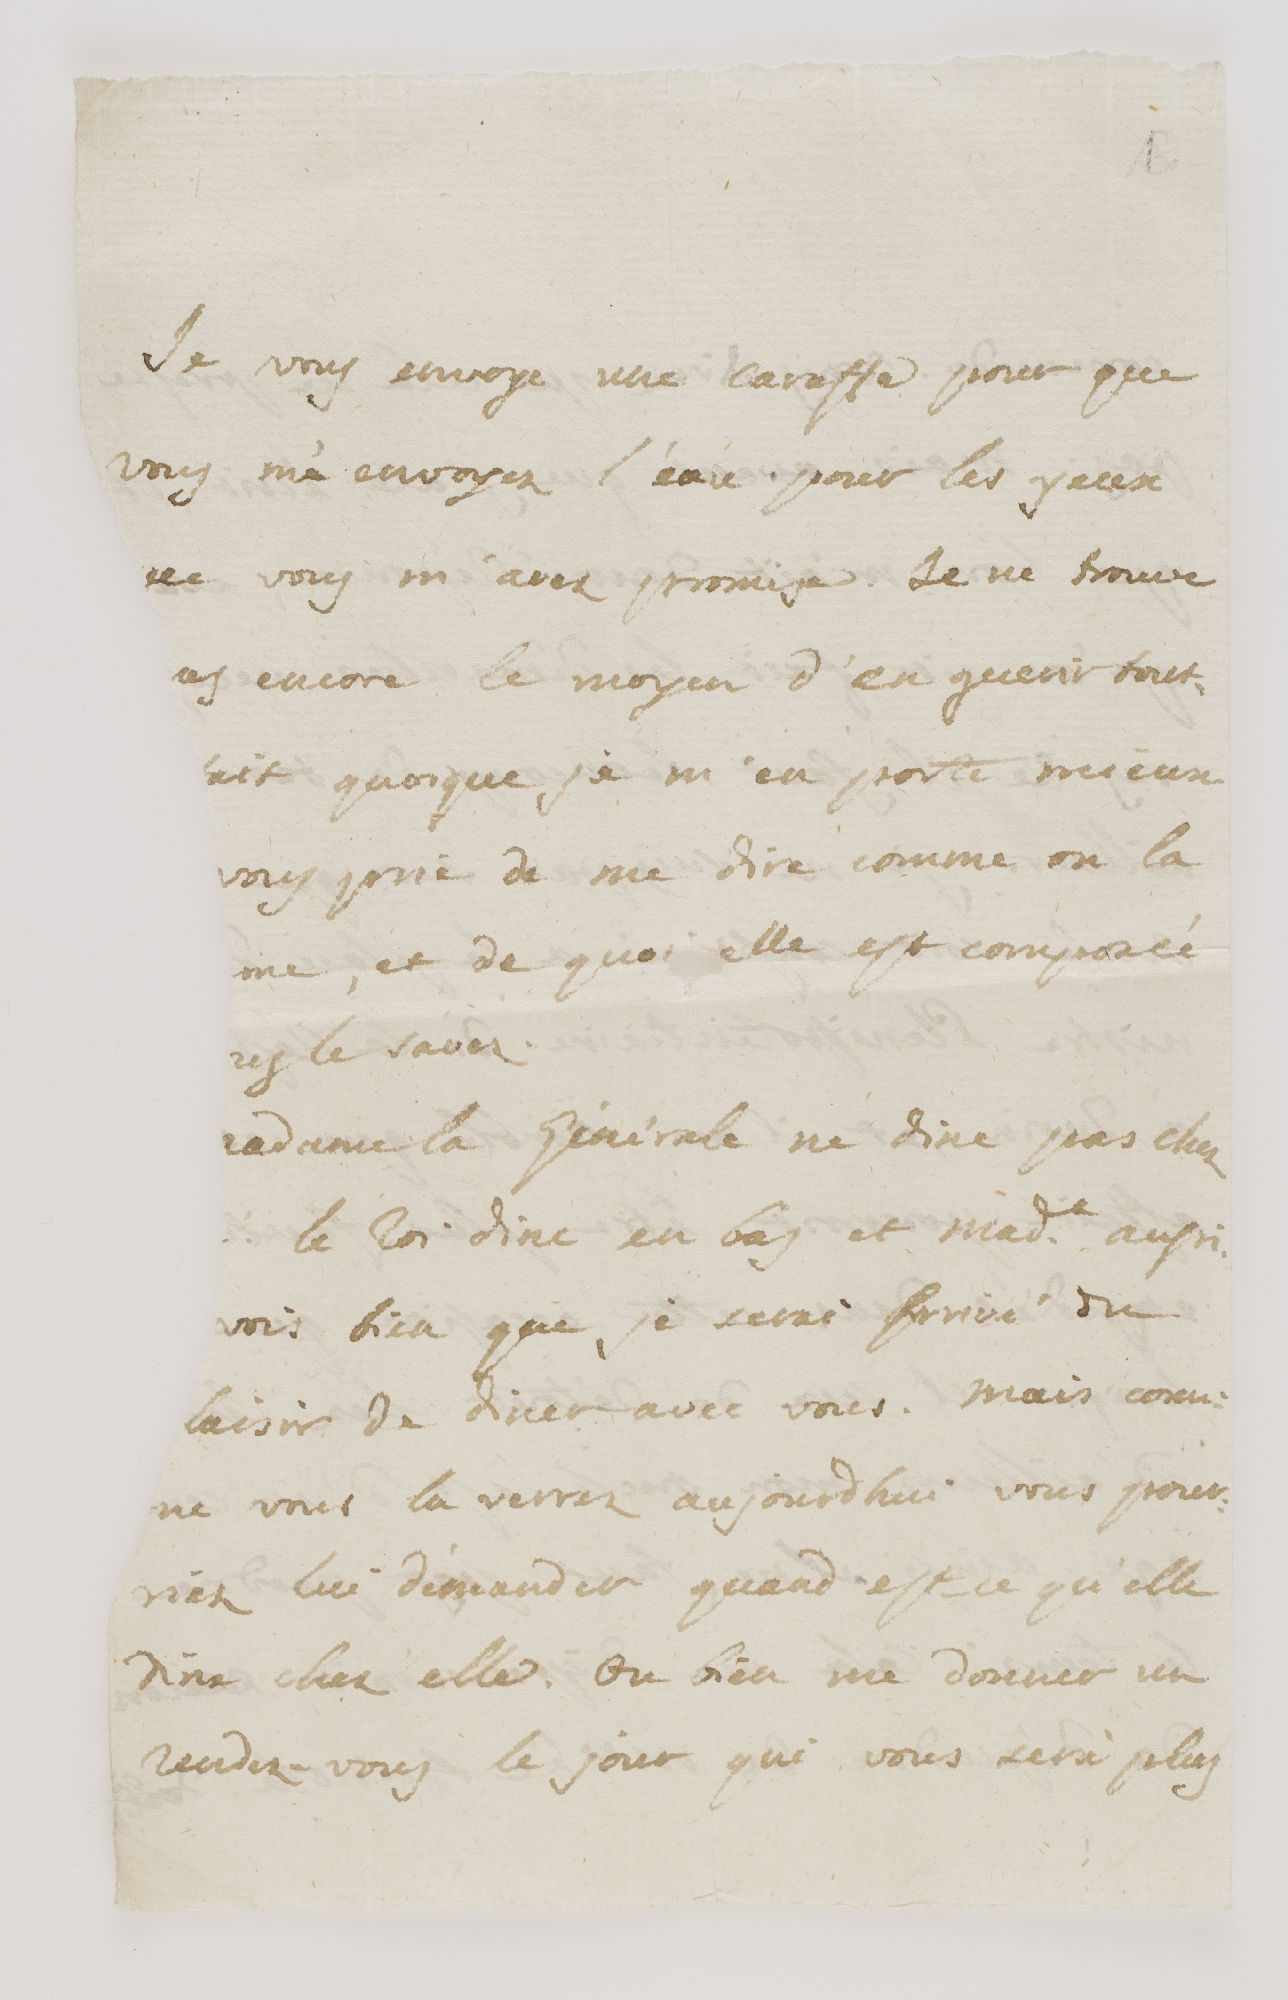 Je vous envoye une caraffe pour que
vous me envoyez l'eau pour les yeux
vous m'avez promise. Je ne trouve
encore le moyen d'en guerir tout-
quoique je m'en porte mieux
vous prie de me dire comme on la
me, et de quoi elle est composée
le savez.
adame la Générale ne dine pas chez
le Roi dine en bas et Mad.e aussi.
vois bien que je serai privé du
laisir de diner avec vous. Mais com-
me vous la verrez aujourdhui vous pour-
riez lui demander quand est-ce qu'elle
dine chez elle. Ou bien me donner un
rendez-vous le jour qui vous sera plus